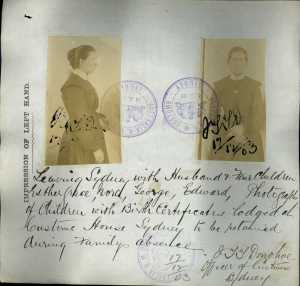 IMPRESSION OF LEFT HAND.
17/12/03
Leaving Sydney with Husband & Four Children
Esther Grace, Nora, George, Edward, Photographs
of Children with Birth Certificates lodged at
Customs House Sydney to be retained
during Family absence
J.T.T. Donohoe
Officer of Customs
Sydney
17
12
03